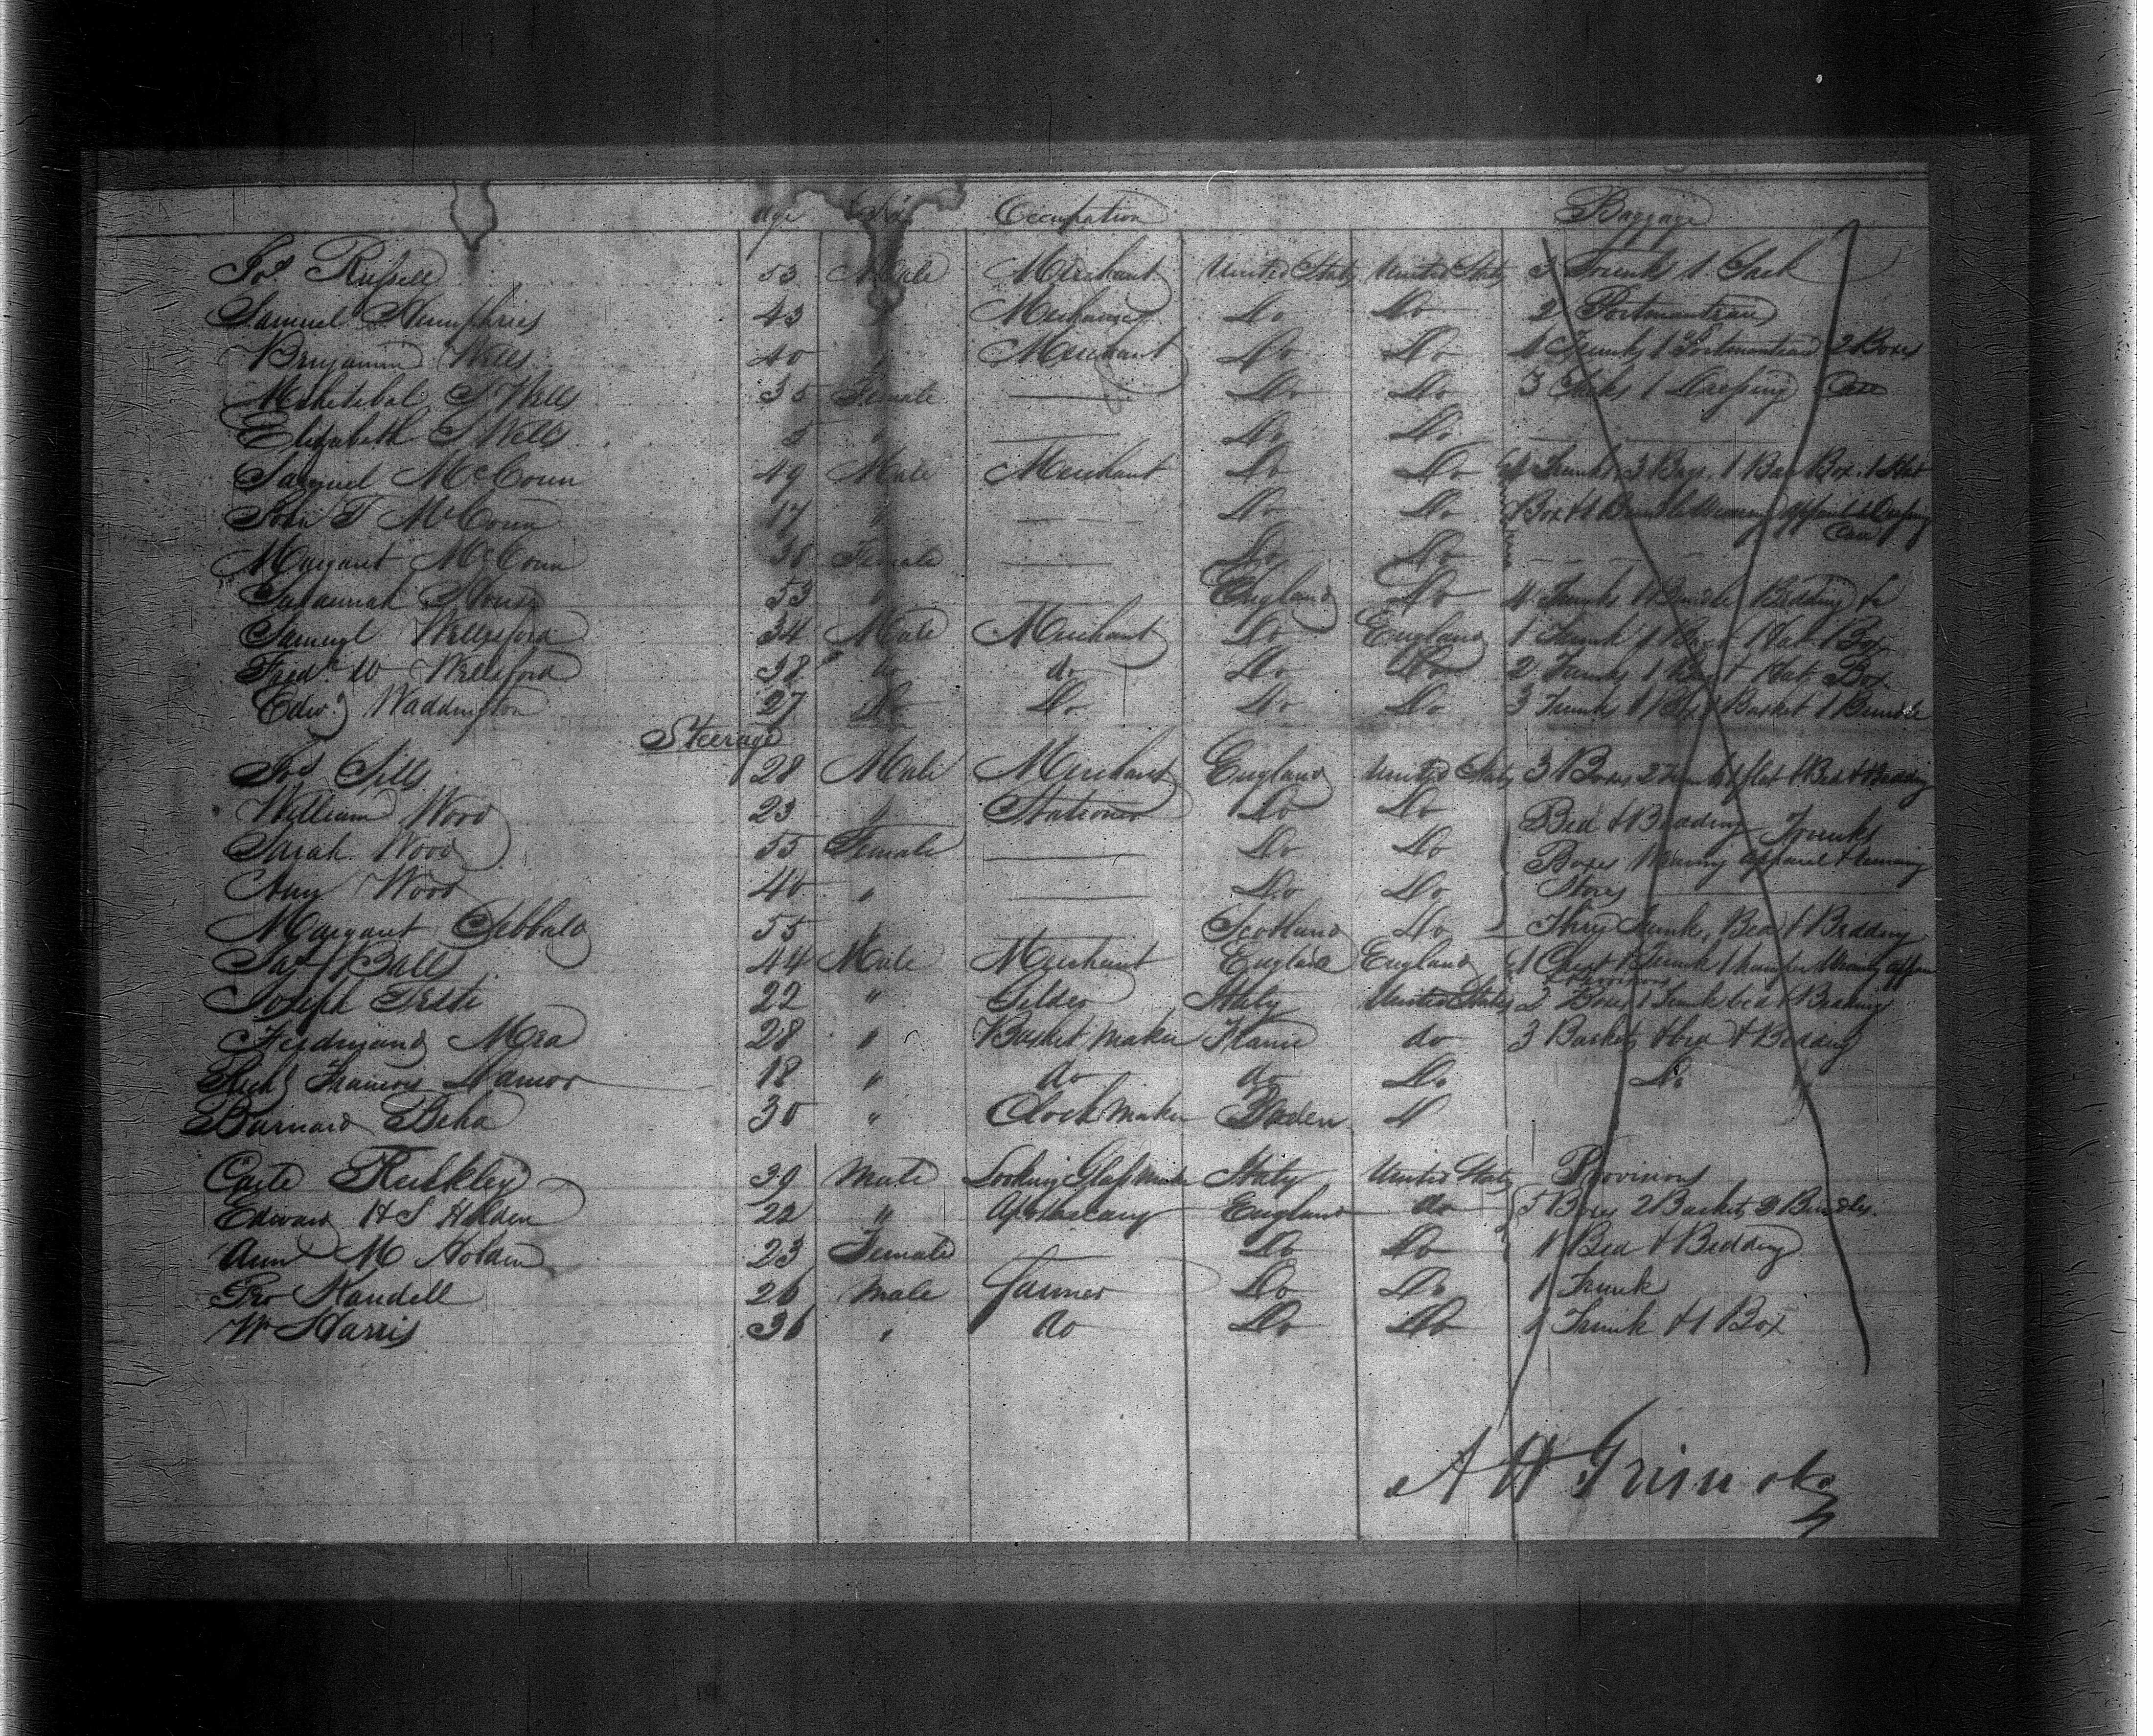 Age Sex Occupation Baggage
Jos Russell 53 Male Merchant United States United States 3 Trunks 1 Sack
Samuel Humphries 43 " Merchant Do Do 2 Portmanteau
Benjamin Wells 40 " Merchant Do Do 4 Trunks 1 Portmanteau 2 Boxes
Mehitebal S Wells 35 Female — Do Do 3 Sacks 1 Dressing Case
Elizabeth S Wells 5 " — Do Do
Samuel McCoun 49 Male Merchant Do Do 4 Trunks 3 Bags. 1 Box 1 Hat
John T McCoun 17 " — Do Do Box & 1 Bundle Wearing apparel & Dressing
Case
Margaret McCoun 38 Female — Do Do
Savannah House 53 " — England Do 4 Trunks 1 Bundle Bedding &c
Samuel Wellsford 34 Male Merchant Do England 1 Trunk 1 Bag 1 Hat Box
Fredk W Wellsford 38 do do Do Do 2 Trunks 1 Bag & Hat Box
Edwd Waddington 27 Do Do Do Do 3 Trunks 1 Box 1 Basket 1 Bundle
Steerage
Jos Sills 28 Male Merchant England United States 3 Boxes 2 Trunks 1 Hat & Bed & Bedding
William Wood 23 " Stationer Do Do Bed & Bedding Trunks
Sarah Wood 55 Female — Do Do Boxes Wearing apparel & remaing
Amy Wood 40 " — Do Do Stores
Margaret Sebbald 55 " — Scotland Do Three Trunks, Bed & Bedding
Jas Ball 44 Male Merchant England England 1 Chest 1 Trunk 1 hamper Wearing appar
Provisions
Joseph Testi 22 " Gilder Italy United States 2 Boxes 1 Trunk bed & Bedding
Ferdinand Mea 28 " Basket Maker France do 3 Baskets & bed & Bedding
Richd Francois Damor 18 " do do Do Do
Barnard Beha 30 " Clock Maker Baden D
Male Looking Glass Maker Italy United States Provisions
39
Edward H S Holden 22 " Apothecary England do 5 Boxes 2 Baskets 3 Bundles.
Ann M Holden 23 Female Do Do 1 Bed & Bedding
Geo Handell 26 Male Farmer Do Do 1 Trunk
Wm Harris 36 " do Do Do 1 Trunk & 1 Box
A H Griswold